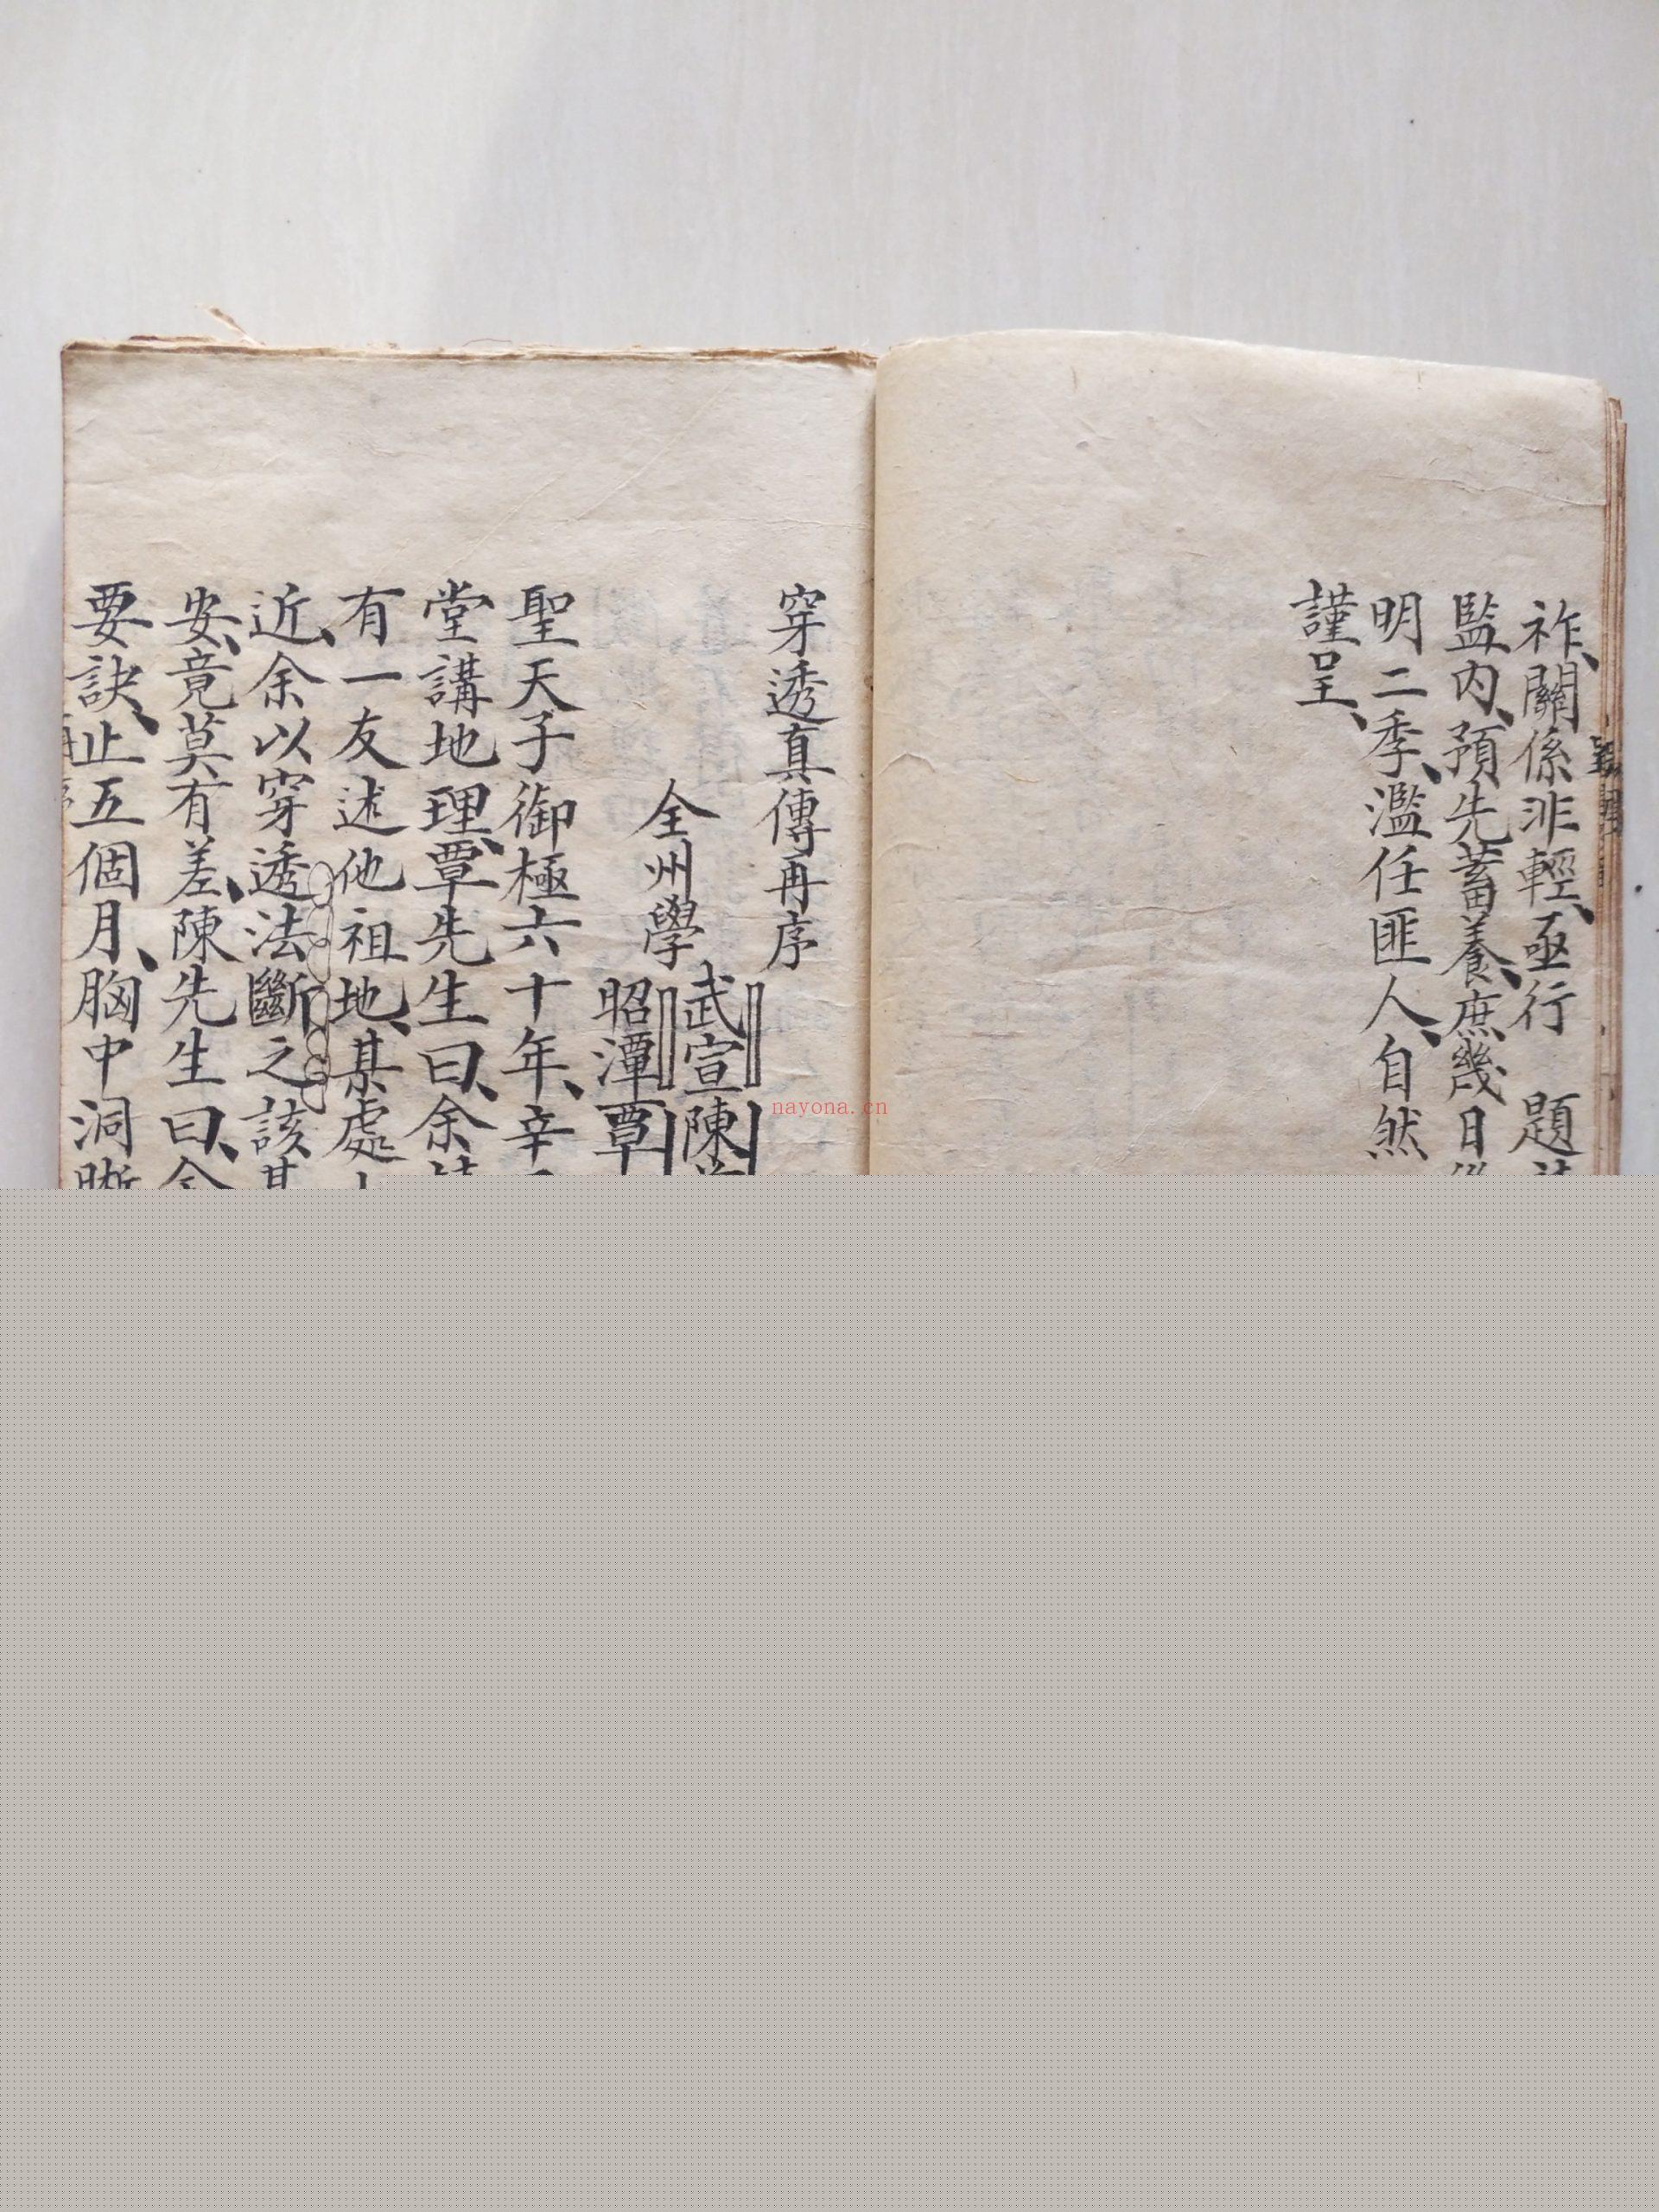 祚、關係非輕、亟行 題
監內、預先蓄養、庶幾日後
明二季、濫任匪人、自然
謹呈、
穿透真傳再序
全州學
武宣陳
昭潭覃
聖天子御極六十年、辛
堂講地理、覃先生曰、余
有一友述他祖地、某處
近、余以穿透法斷之該其
安、竟莫有差、陳先生曰、余
要訣、止五個月、胸中洞晰
nayona.cn